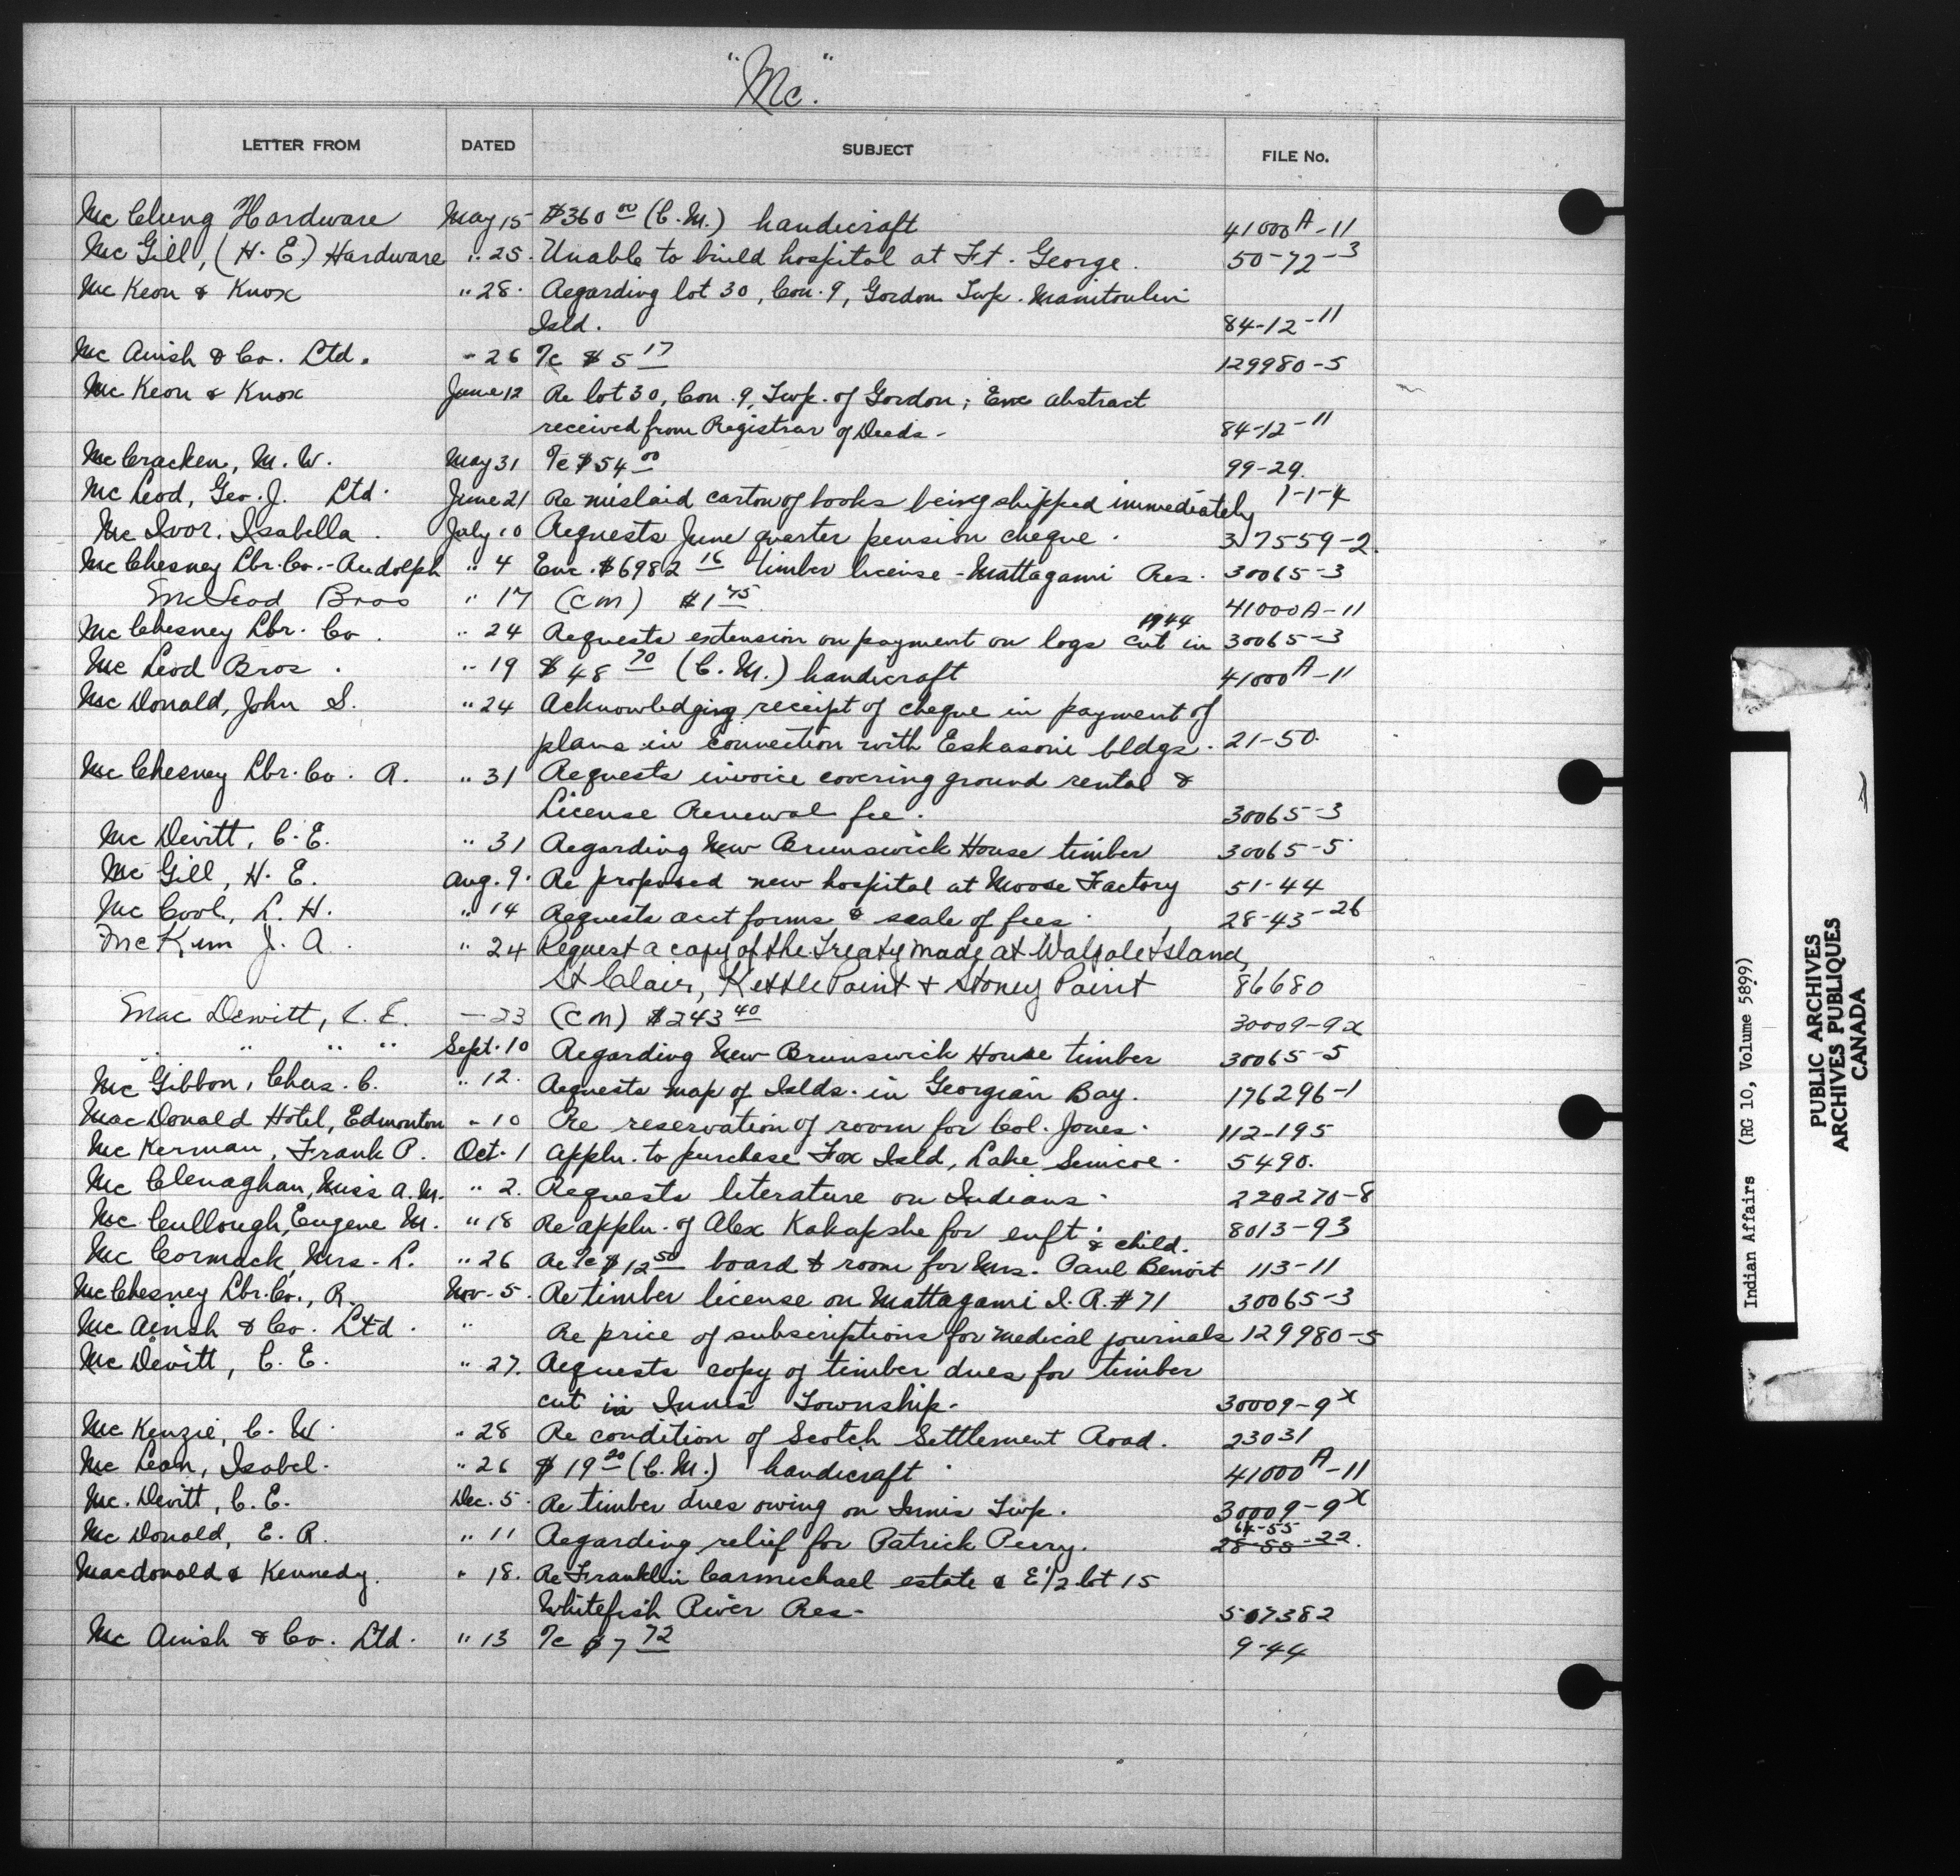 "Mc."
LETTER FROM DATED SUBJECT FILE No.
Mc Clung Hardware May 15 $360 00 (C.M.) handicraft 41000A-11
Mc Gill, (H.E.) Hardware " 25. Unable to build hospital at Ft. George. 50-72-3
Mc Keon & Knox " 28. Regarding lot 30, Con. 9, Gordon Twp. Manitoulin
Isld. 84-12-11
Mc Ainsh & Co. Ltd. " 26 Tc $5 17 129980-5
Mc Keon & Knox June 12 Re lot 30, Con. 9, Twp. of Gordon; Enc abstract
received from Registrar of Deeds - 84-12-11
Mc Cracken, M. W. May 31 Tc $54 00 99-29.
Mc Leod, Geo. J. Ltd. June 21 Re mislaid carton of books being shipped immediately 1-1-4
Mc Ivor. Isabella. July 10 Requests June quarter pension cheque. 37559-2.
Mc Chesney Lbr. Co. - Rudolph " 4 Enc. $6982 16 timber license - Mattagami Res. 30065-3
McLeod Bros " 17 (CM) $1 75 41000A-11
1944
Mc Chesney Lbr. Co. " 24 Requests extension on payment on logs cut in 30065-3
Mc Leod Bros. " 19 $48 70 (C.M.) handicraft 41000A-11
Mc Donald, John S. " 24 Acknowledging receipt of cheque in payment of
plans in connection with Eskasoni bldgs. 21-50.
Mc Chesney Lbr. Co. R. " 31 Requests invoice covering ground rental &
License Renewal fee. 30065-3
Mc Devitt, C. E. " 31 Regarding New Brunswick House timber 30065-5
Mc Gill, H. E. Aug. 9. Re proposed new hospital at Moose Factory 51-44
Mc Cool, L. H. " 14 Requests acct forms & scale of fees. 28-43-26
McKim J. A. " 24 Request a copy of the Treaty made at Walpole Island,
St Clair, Kettle Point + Stoney Point 86680
Mac Dewitt, C. E. - 23 (CM) $243 40 30009-9x
" " " " Sept. 10 Regarding New Brunswick House timber 30065-5
Mc Gibbon, Chas. C. " 12. Requests map of Islds. in Georgian Bay. 176296-1
MacDonald Hotel, Edmonton " 10 Re reservation of room for Col. Jones. 112-195
Mc Kerman, Frank P. Oct. 1 Appln. to purchase Fox Isld, Lake Simcoe. 5490.
Mc Clenaghan, Miss A. M. " 2. Requests literature on Indians. 220270-8
Mc Cullough, Eugene M. " 18 Re appln. of Alex Kakapshe for enft. 8013-93
& child.
Mc Cormack, Mrs. L. " 26 Re Tc $12 50 board & room for Mrs. Paul Benoit 113-11
Mc Chesney Lbr. Co., R. Nov. 5. Re timber license on Mattagami I.R. #71 30065-3
Mc Ainsh & Co. Ltd. " Re price of subscriptions for medical journals 129980-5
Mc Devitt, C. E. " 27. Requests copy of timber dues for timber
cut in Innis Township. 30009-9x
Mc Kenzie, C. W. " 28 Re condition of Scotch Settlement Road. 23031
Mc Lean, Isobel. " 26 $19 20 (C.M.) handicraft 41000A-11
Mc. Devitt, C. E. Dec. 5. Re timber dues owing on Innis Twp. 30009-9x
64-55
Mc Donald, E. R. " 11 Regarding relief for Patrick Perry. 28-58-22.
Macdonald & Kennedy. " 18. Re Franklin Carmichael estate & E 1/2 lot 15
Whitefish River Res. 507382
Mc Ainsh & Co. Ltd. " 13 Tc $7 72 9-44
Indian Affairs (RG 10, Volume 5899)
PUBLIC ARCHIVES
ARCHIVES PUBLIQUES
CANADA